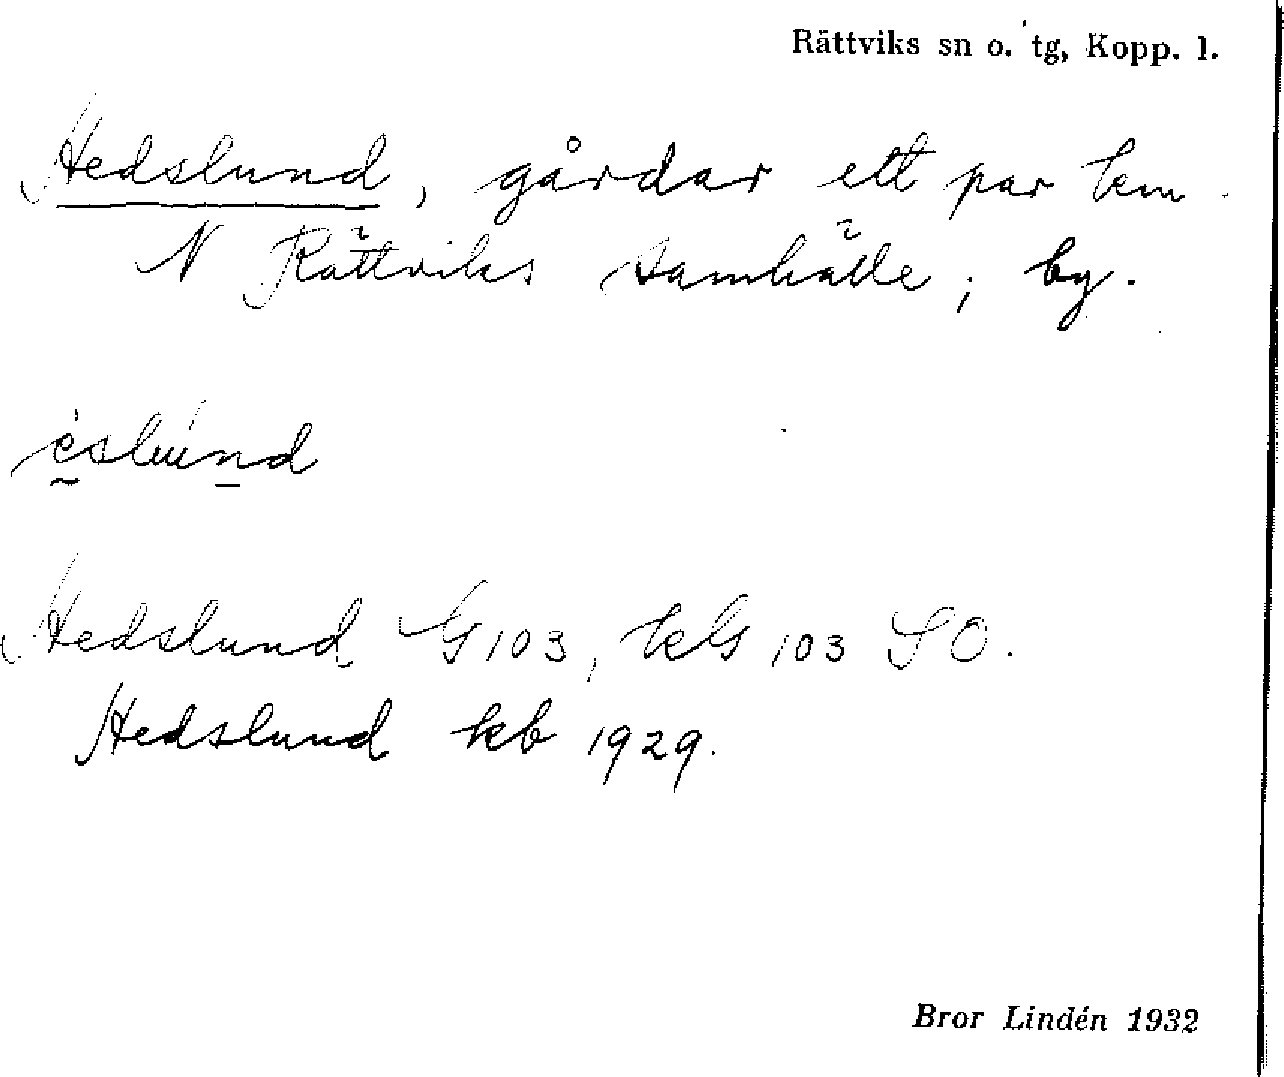 Rättviks sn o. tg, Kopp. l.
Hedslund, gårdar ett par km
N Rättviks samhälle; by.
Hedslund G103, kG 103 SO.
Hedslund kb 1929.
Bror Lindén 1932